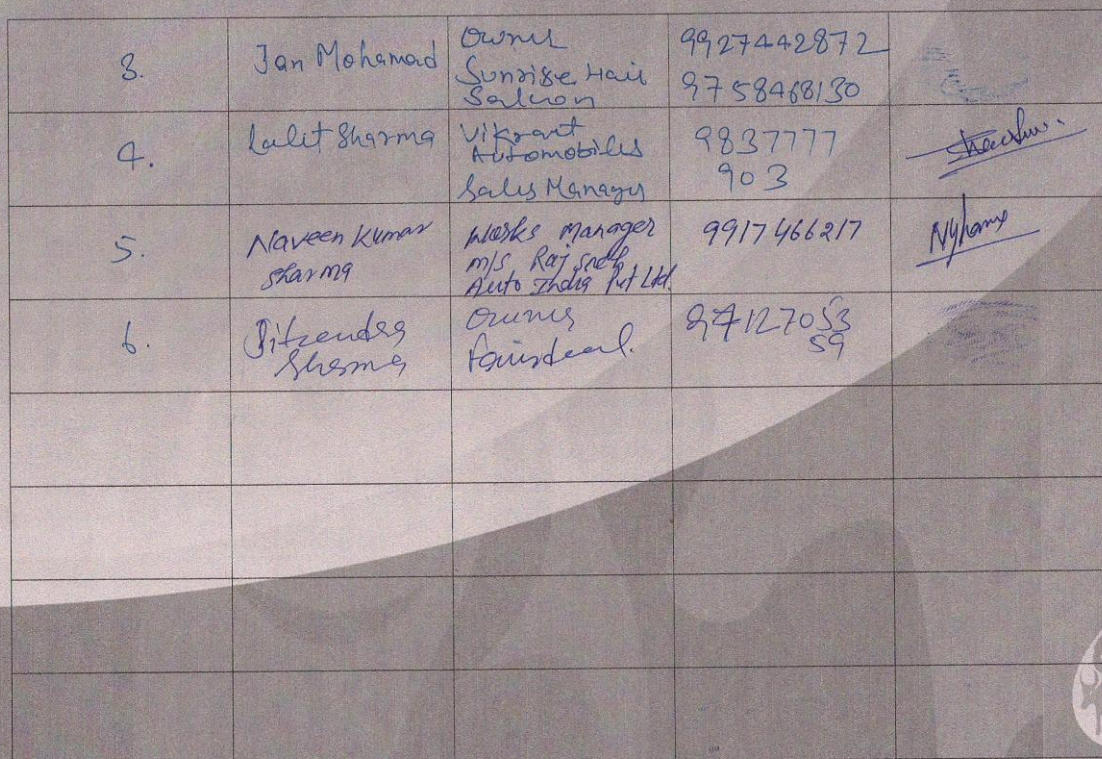 3.
Jan Mohamad
Owner
Sunrise Hair
Saloon
9927442872
9758468130
4.
Lalit Sharma
Vikrant
Automobiles
Sales Manager
9837777
903
5.
Naveen Kumar
Sharma
Works Manager
M/S Raj
Auto India Pvt Ltd.
9917466217
6.
Jitendra
Sharma
Owner
97127053
59